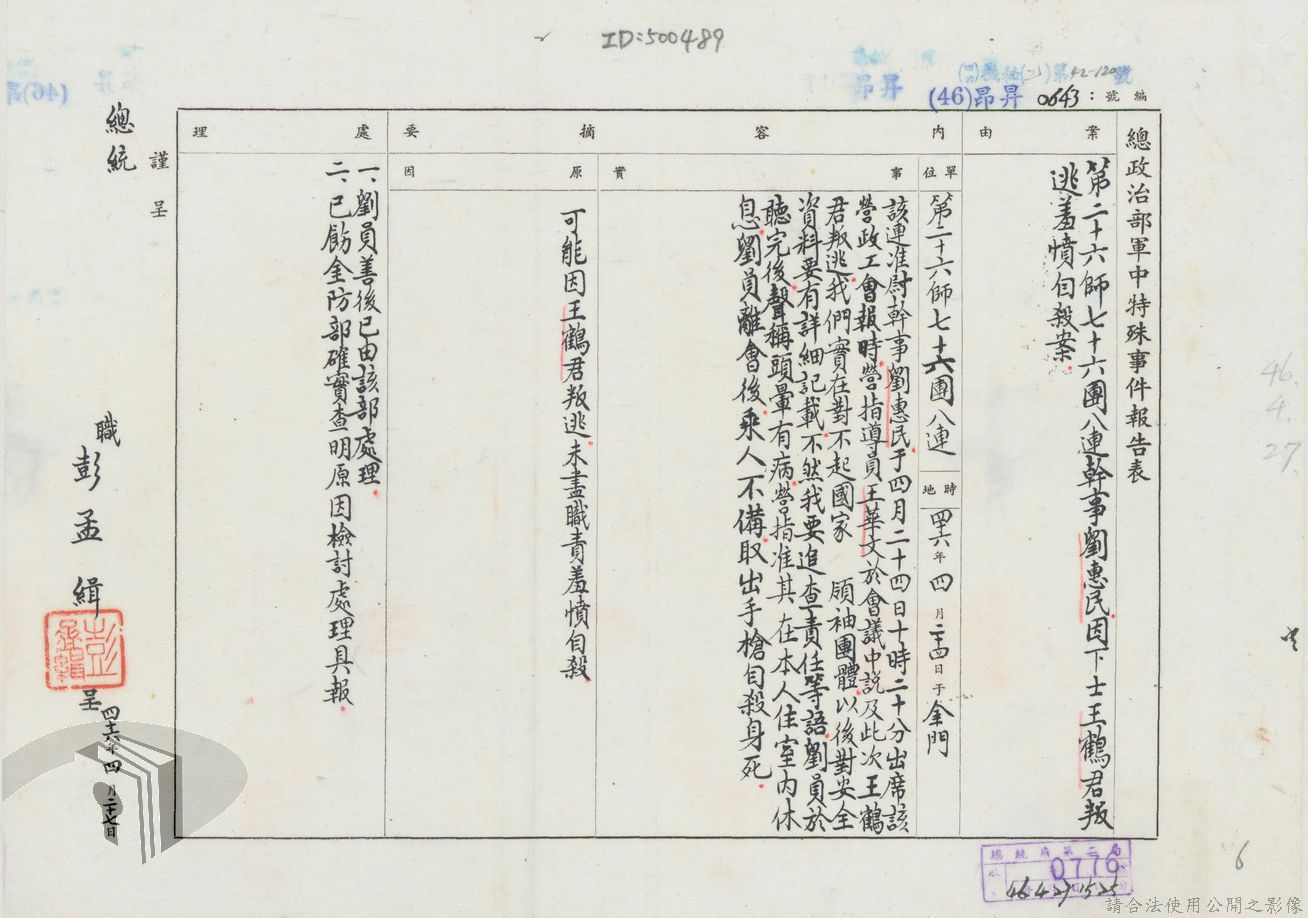 ID:500489
(46)昂昇 0643:號編
總政治部軍中特殊事件報告表
案由
第二十六師七十六團八連幹事劉惠民因下士王鶴君叛
逃羞憤自殺案
內容摘要
單位
第二十六師七十六團八連
時地
四六年四月二十四日于金門
事實
該連准尉幹事劉惠民于四月二十四日十時二十分出席該
營政工會報時營指導員王華文於會議中說及此次王鶴
君叛逃我們實在對不起國家 領袖團體以後對安全
資料要有詳細記載不然我要追查責任等語劉員於
聽完後聲稱頭暈有病營指准其在本人住室內休
息劉員離會後乘人不備取出手槍自殺身死
原因
可能因王鶴君叛逃未盡職責羞憤自殺
處理
一、劉員善後已由該部處理
二、已飭金防部確實查明原因檢討處理具報
謹呈
總統
職彭孟緝呈
四六年四月二十七日
46.
4.
27.
總統府第二局
0776
46 4 27 15 25
6
請合法使用公開之影像